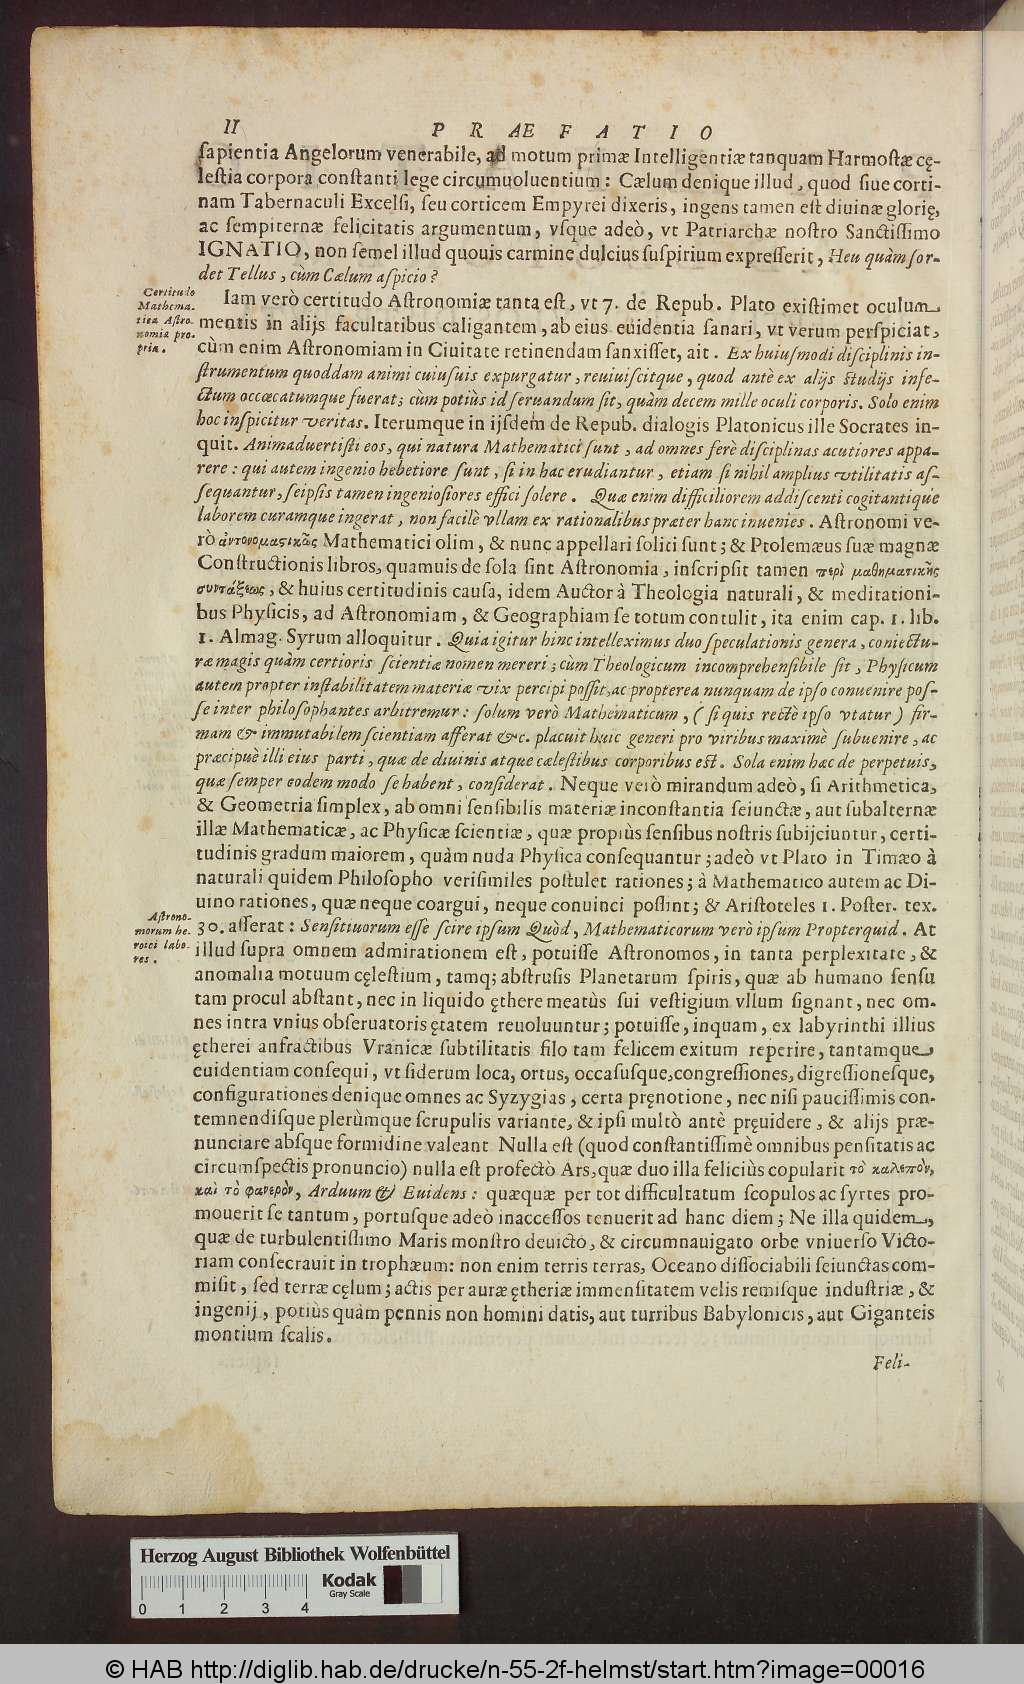 II P R Æ F A T I O
ſapientia Angelorum venerabile, ad motum primæ Intelligentiæ tanquam Harmoſtæ cę-
leſtia corpora conſtanti lege circumuoluentium: Cælum denique illud, quod ſiue corti-
nam Tabernaculi Excelſi, ſeu corticem Empyrei dixeris, ingens tamen eſt diuinæ glorię,
ac ſempiternæ felicitatis argumentum, vſque adeò, vt Patriarchæ noſtro Sanctiſſimo
IGNATIO, non ſemel illud quouis carmine dulcius ſuſpirium expreſſerit, Heu quàm ſor-
det Tellus, cùm Cælum aſpicio?
Certitudo
Mathema-
tica Aſtro-
nomiæ pro-
pria.
Iam verò certitudo Aſtronomiæ tanta eſt, vt 7. de Repub. Plato exiſtimet oculum
mentis in alijs facultatibus caligantem, ab eius euidentia ſanari, vt verum perſpiciat,
cùm enim Aſtronomiam in Ciuitate retinendam ſanxiſſet, ait. Ex huiuſmodi diſciplinis in-
ſtrumentum quoddam animi cuiuſuis expurgatur, reuiuiſcitque, quod antè ex alijs ſtudijs infe-
ctum occæcatumque fuerat; cùm potiùs id ſeruandum ſit, quàm decem mille oculi corporis. Solo enim
hoc inſpicitur veritas. Iterumque in ijſdem de Repub. dialogis Platonicus ille Socrates in-
quit. Animaduertiſti eos, qui natura Mathematici ſunt, ad omnes ferè diſciplinas acutiores appa-
rere: qui autem ingenio hebetiore ſunt, ſi in hac erudiantur, etiam ſi nihil amplius vtilitatis aſ-
ſequantur, ſeipſis tamen ingenioſiores effici ſolere. Quæ enim difficiliorem addiſcenti cogitantique
laborem curamque ingerat, non facilè vllam ex rationalibus præter hanc inuenies. Aſtronomi ve-
rò ἀντονομαςικῶς Mathematici olim, & nunc appellari ſoliti ſunt; & Ptolemæus ſuæ magnæ
Conſtructionis libros, quamuis de ſola ſint Aſtronomia, inſcripſit tamen περὶ μαθηματικῆς
συντάξεως, & huius certitudinis cauſa, idem Auctor à Theologia naturali, & meditationi-
bus Phyſicis, ad Aſtronomiam, & Geographiam ſe totum contulit, ita enim cap. 1. lib.
1. Almag. Syrum alloquitur. Quia igitur hinc intelleximus duo ſpeculationis genera, coniectu-
ræ magis quàm certioris ſcientiæ nomen mereri; cùm Theologicum incomprehenſibile ſit, Phyſicum
autem propter inſtabilitatem materiæ vix percipi poſſit, ac propterea nunquam de ipſo conuenire poſ-
ſe inter philoſophantes arbitremur: ſolum verò Mathematicum, (ſi quis rectè ipſo vtatur) fir-
mam & immutabilem ſcientiam afferat &c. placuit huic generi pro viribus maximè ſubuenire, ac
præcipuè illi eius parti, quæ de diuinis atque cæleſtibus corporibus eſt. Sola enim hæc de perpetuis,
quæ ſemper eodem modo ſe habent, conſiderat. Neque verò mirandum adeò, ſi Arithmetica,
& Geometria ſimplex, ab omni ſenſibilis materiæ inconſtantia ſeiunctæ, aut ſubalternæ
illæ Mathematicæ, ac Phyſicæ ſcientiæ, quæ propiùs ſenſibus noſtris ſubijciuntur, certi-
tudinis gradum maiorem, quàm nuda Phyſica conſequantur; adeò vt Plato in Timæo à
naturali quidem Philoſopho veriſimiles poſtulet rationes; à Mathematico autem ac Di-
uino rationes, quæ neque coargui, neque conuinci poſſint; & Ariſtoteles 1. Poſter. tex.
Aſtrono-
morum he-
roici labo-
res.
30. aſſerat: Senſitiuorum eſſe ſcire ipſum Quòd, Mathematicorum verò ipſum Propterquid. At
illud ſupra omnem admirationem eſt, potuiſſe Aſtronomos, in tanta perplexitate, &
anomalia motuum cęleſtium, tamq; abſtruſis Planetarum ſpiris, quæ ab humano ſenſu
tam procul abſtant, nec in liquido ęthere meatùs ſui veſtigium vllum ſignant, nec om-
nes intra vnius obſeruatoris ętatem reuoluuntur; potuiſſe, inquam, ex labyrinthi illius
ętherei anfractibus Vranicæ ſubtilitatis filo tam felicem exitum reperire, tantamque
euidentiam conſequi, vt ſiderum loca, ortus, occaſuſque, congreſſiones, digreſſioneſque,
configurationes denique omnes ac Syzygias, certa pręnotione, nec niſi pauciſſimis con-
temnendiſque plerùmque ſcrupulis variante, & ipſi multò antè pręuidere, & alijs præ-
nunciare abſque formidine valeant. Nulla eſt (quod conſtantiſſimè omnibus penſitatis ac
circumſpectis pronuncio) nulla eſt profectò Ars, quæ duo illa feliciùs copularit τὸ καλεπὸν,
καὶ τὸ φανερὸν, Arduum & Euidens: quæquæ per tot difficultatum ſcopulos ac ſyrtes pro-
mouerit ſe tantum, portuſque adeò inacceſſos tenuerit ad hanc diem; Ne illa quidem,
quæ de turbulentiſſimo Maris monſtro deuicto, & circumnauigato orbe vniuerſo Victo-
riam conſecrauit in trophæum: non enim terris terras, Oceano diſſociabili ſeiunctas com-
miſit, ſed terræ cęlum; actis per auræ ętheriæ immenſitatem velis remiſque induſtriæ, &
ingenij, potiùs quàm pennis non homini datis, aut turribus Babylonicis, aut Giganteis
montium ſcalis.
Feli-
Herzog August Bibliothek Wolfenbüttel
Kodak
Gray Scale
0 1 2 3 4
© HAB http://diglib.hab.de/drucke/n-55-2f-helmst/start.htm?image=00016